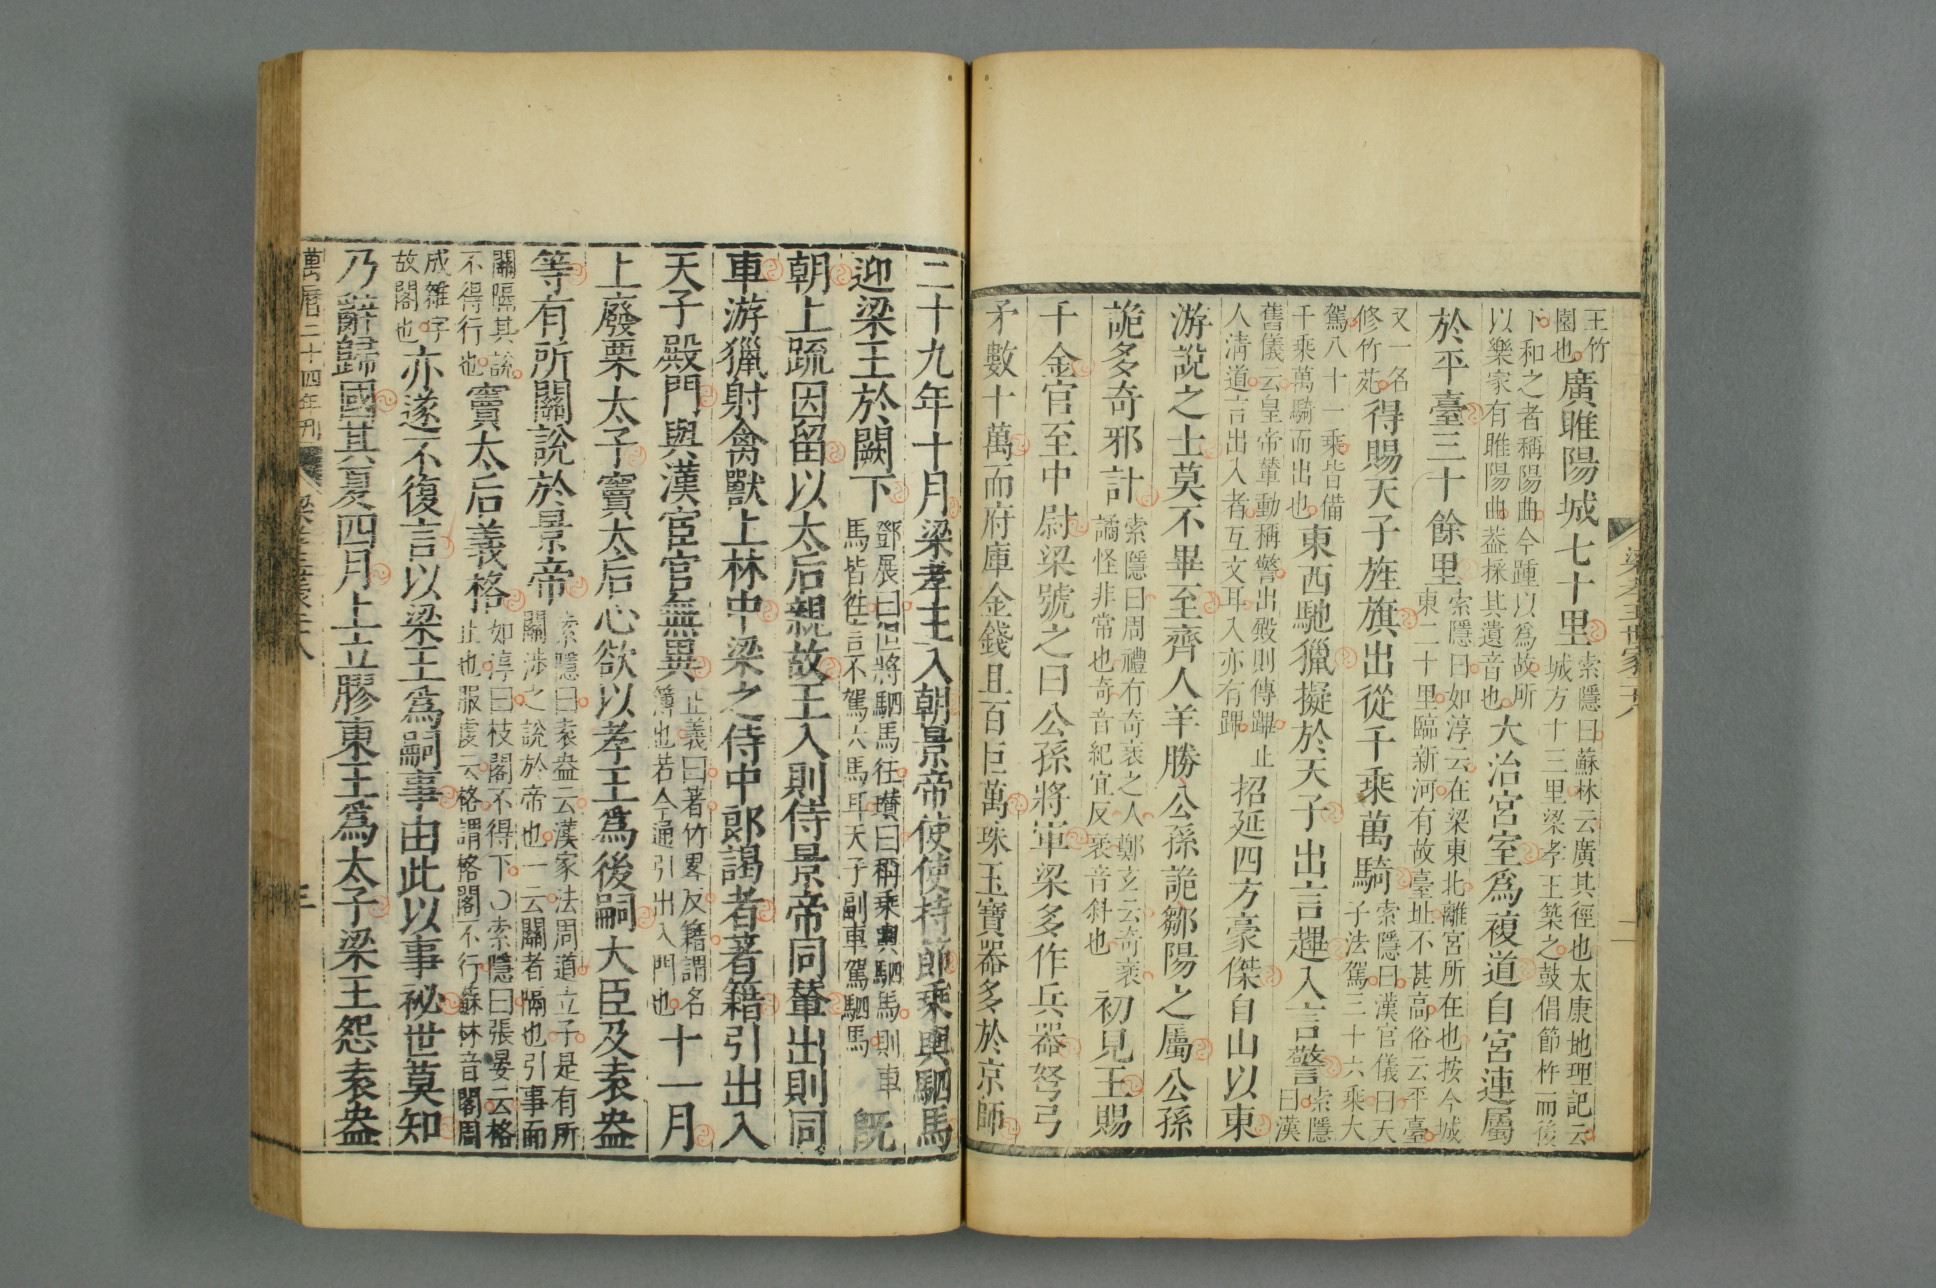 梁孝王世家
王竹園也廣睢陽城七十里索隱曰蘇林云廣其徑也太康地理記云城方十三里梁孝王築之鼓倡節杵而後
下和之者稱陽曲今踵以爲故所以樂家有睢陽曲葢採其遺音也大治宮室爲複道自宮連屬
於平臺三十餘里索隱曰如淳云在梁東北離宮所在也按今城東二十里臨新河有故臺址不甚高俗云平臺
又一名修竹苑得賜天子旌旗出從千乘萬騎索隱曰漢官儀曰天子法駕三十六乘大
駕八十一乘皆備千乘萬騎而出也東西馳獵擬於天子出言趯入言警索隱曰漢
舊儀云皇帝輦動稱警出殿則傳蹕止人淸道言出入者互文耳入亦有蹕招延四方豪傑自山以東
游說之士莫不畢至齊人羊勝公孫詭鄒陽之屬公孫
詭多奇邪計索隱曰周禮有奇衺之人鄭玄云奇衺譎怪非常也奇音紀宜反衺音斜也初見王賜
千金官至中尉梁號之曰公孫將軍梁多作兵器弩弓
矛數十萬而府庫金錢且百巨萬珠玉寶器多於京師
二十九年十月梁孝王入朝景帝使使持節乘輿駟馬
迎梁王於闕下鄧展曰但將駟馬往瓚曰稱乘輿駟馬則車馬皆徃言不駕六馬耳天子副車駕駟馬既
朝上疏因留以太后親故王入則侍景帝同輦出則同
車游獵射禽獸上林中梁之侍中郎謁者著籍引出入
天子殿門與漢宦官無異正義曰著竹畧反籍謂名簿也若今通引出入門也十一月
上廢栗太子竇太后心欲以孝王爲後嗣大臣及袁盎
等有所關說於景帝索隱曰袁盎云漢家法周道立子是有所關涉之說於帝也一云關者隔也引事而
關隔其說不得行也竇太后義格如淳曰枝閣不得下○索隱曰張晏云格止也服虔云格謂格閣不行蘇林音閣周
成雜字故閣也亦遂不復言以梁王爲嗣事由此以事祕世莫知
乃辭歸國其夏四月上立膠東王爲太子梁王怨袁盎
萬曆二十四年刊
三